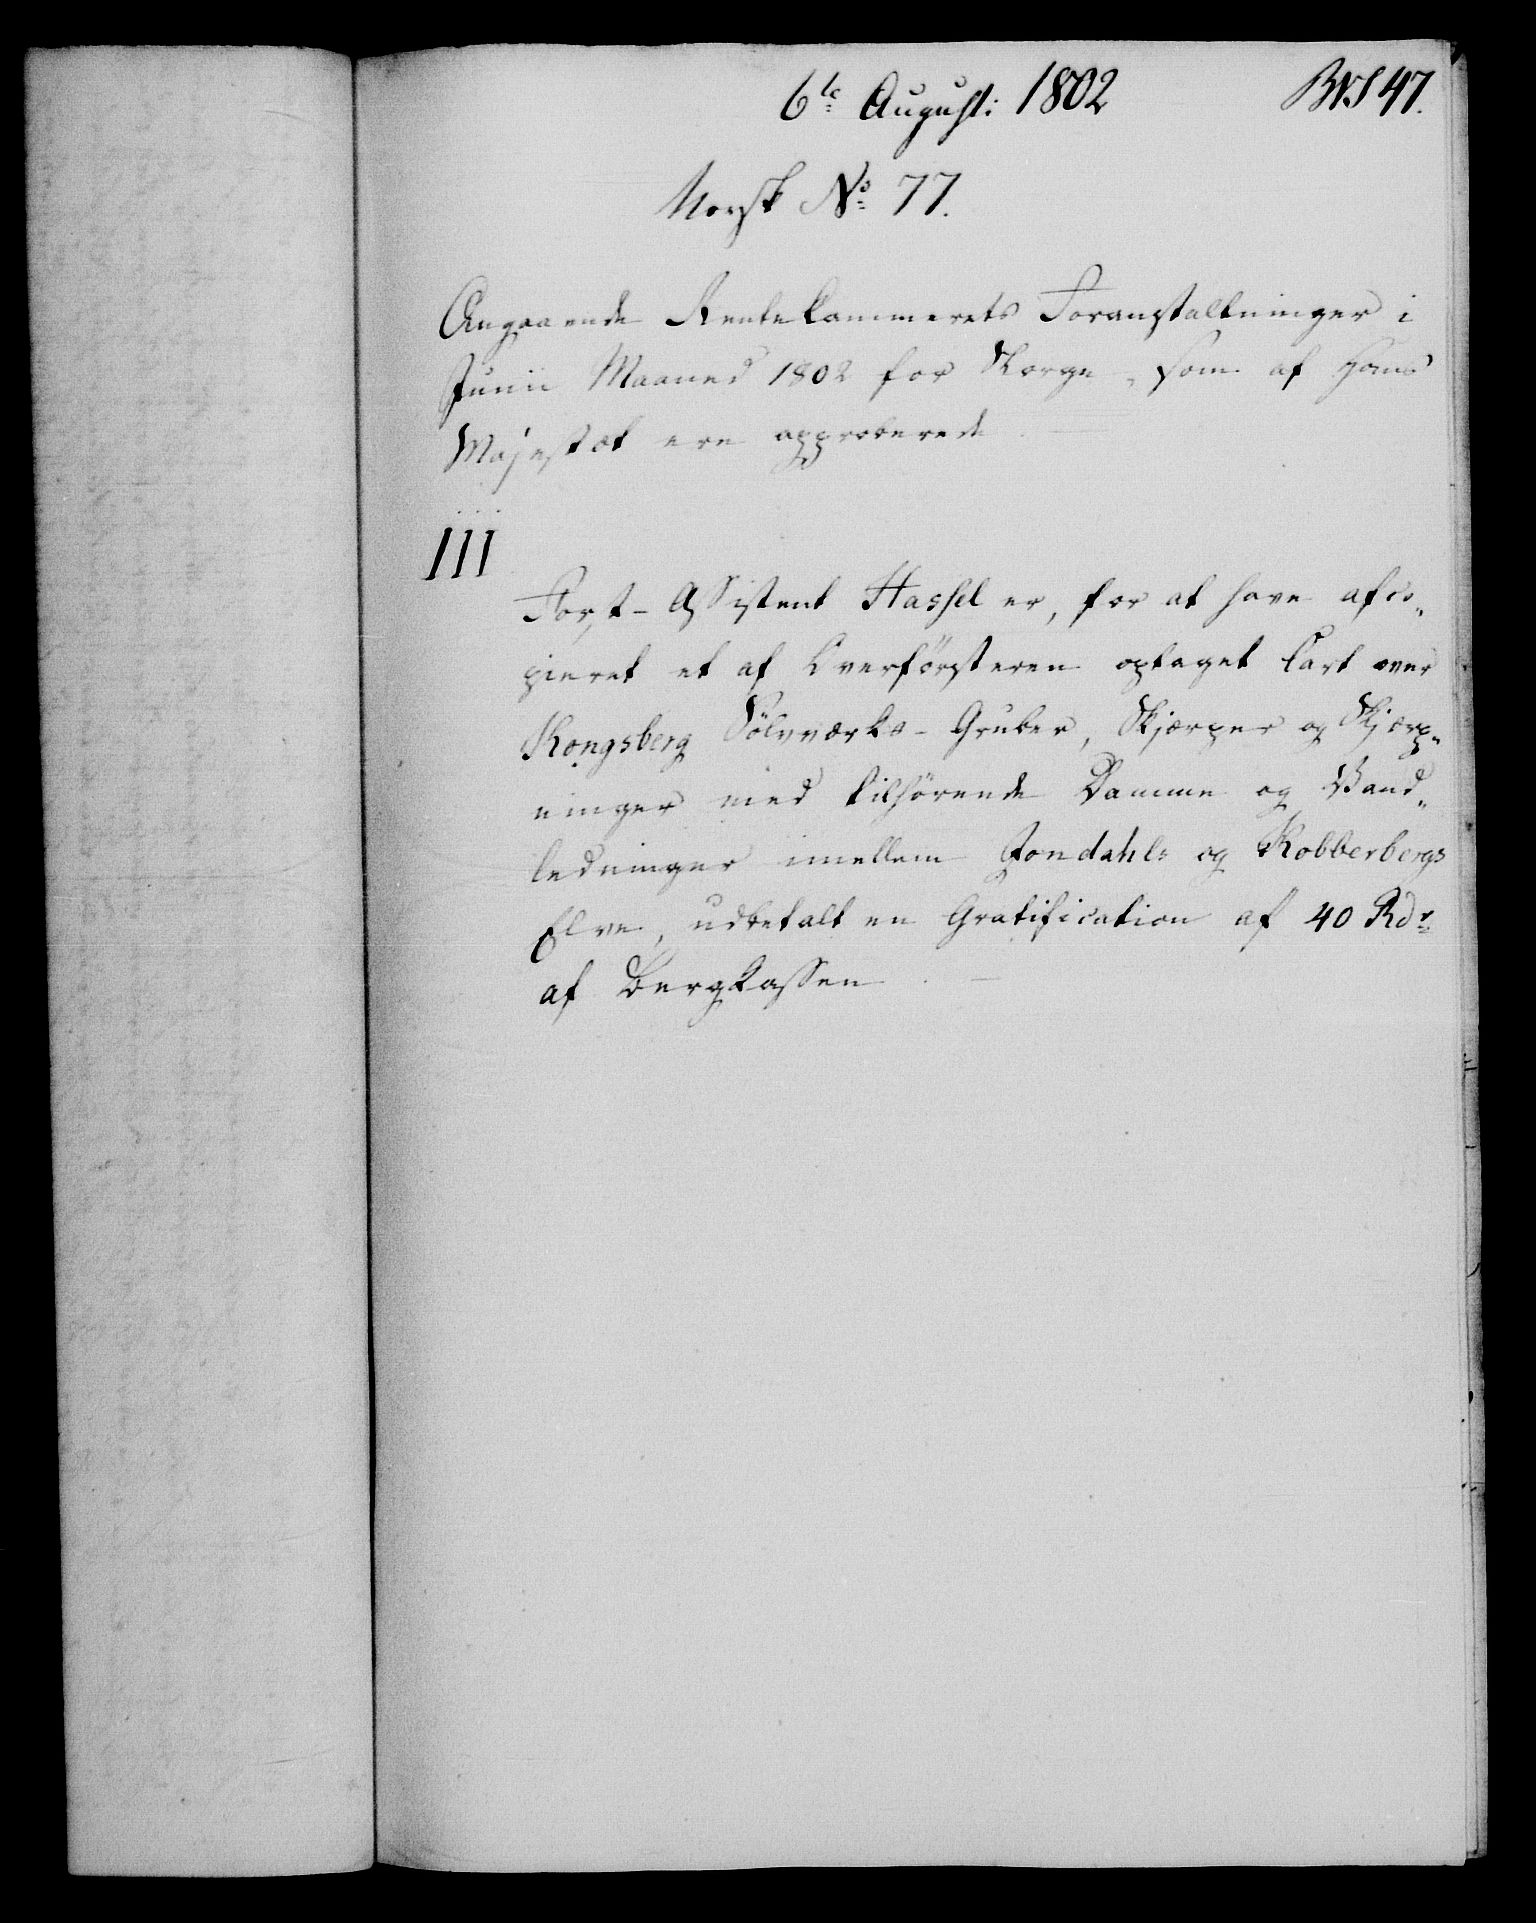 6te Augusti 1802
47.
Norsk No 77.
Angaaende Rentekammerets Foranstaltninger i
Junii Maaned 1802 for Norge, som af Hans
Majestæt ere approberede
III
Forst-Assistent Hassel er, for at have afco„
pieret et af Overförsteren optaget Cart over
Kongsberg Sölvværks-Gruber, Skjærper og Skjerp„
ninger med tilhörende Damme og Vand„
ledninger imellem Jondahls og Kobberbergs
Elve, udbetalt en Gratification af 40 Rdr
af Bergkassen.